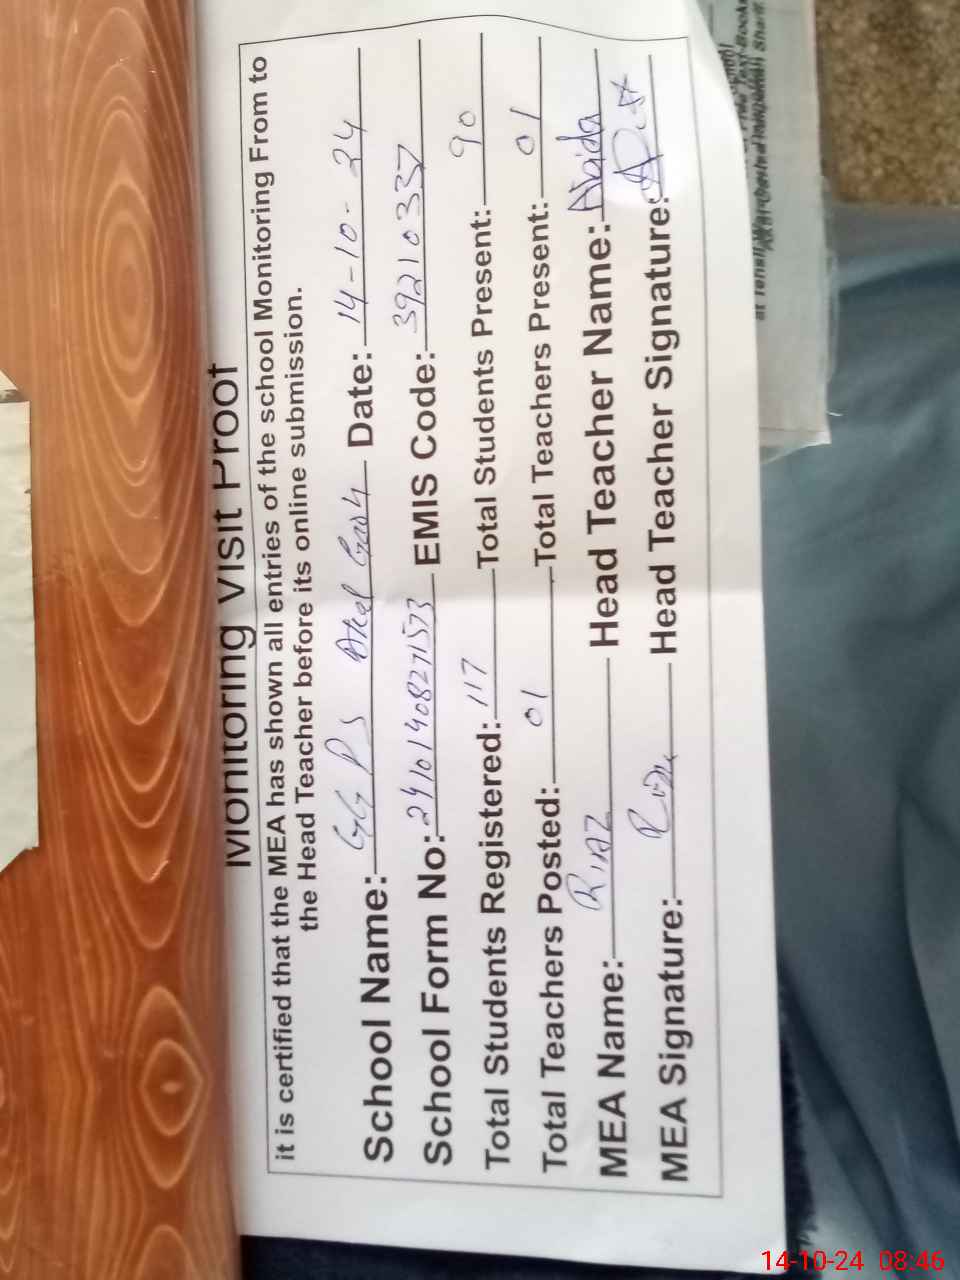 Monitoring Visit Proof
it is certified that the MEA has shown all entries of the school Monitoring From to
the Head Teacher before its online submission.
School Name: GG P S Date: 14-10-24
School Form No: 24101408271573 EMIS Code: 39210337
Total Students Registered: 117 Total Students Present: 90
Total Teachers Posted: 01 Total Teachers Present: 01
MEA Name: RIAZ Head Teacher Name:
MEA Signature: Head Teacher Signature:
14-10-24 08:46